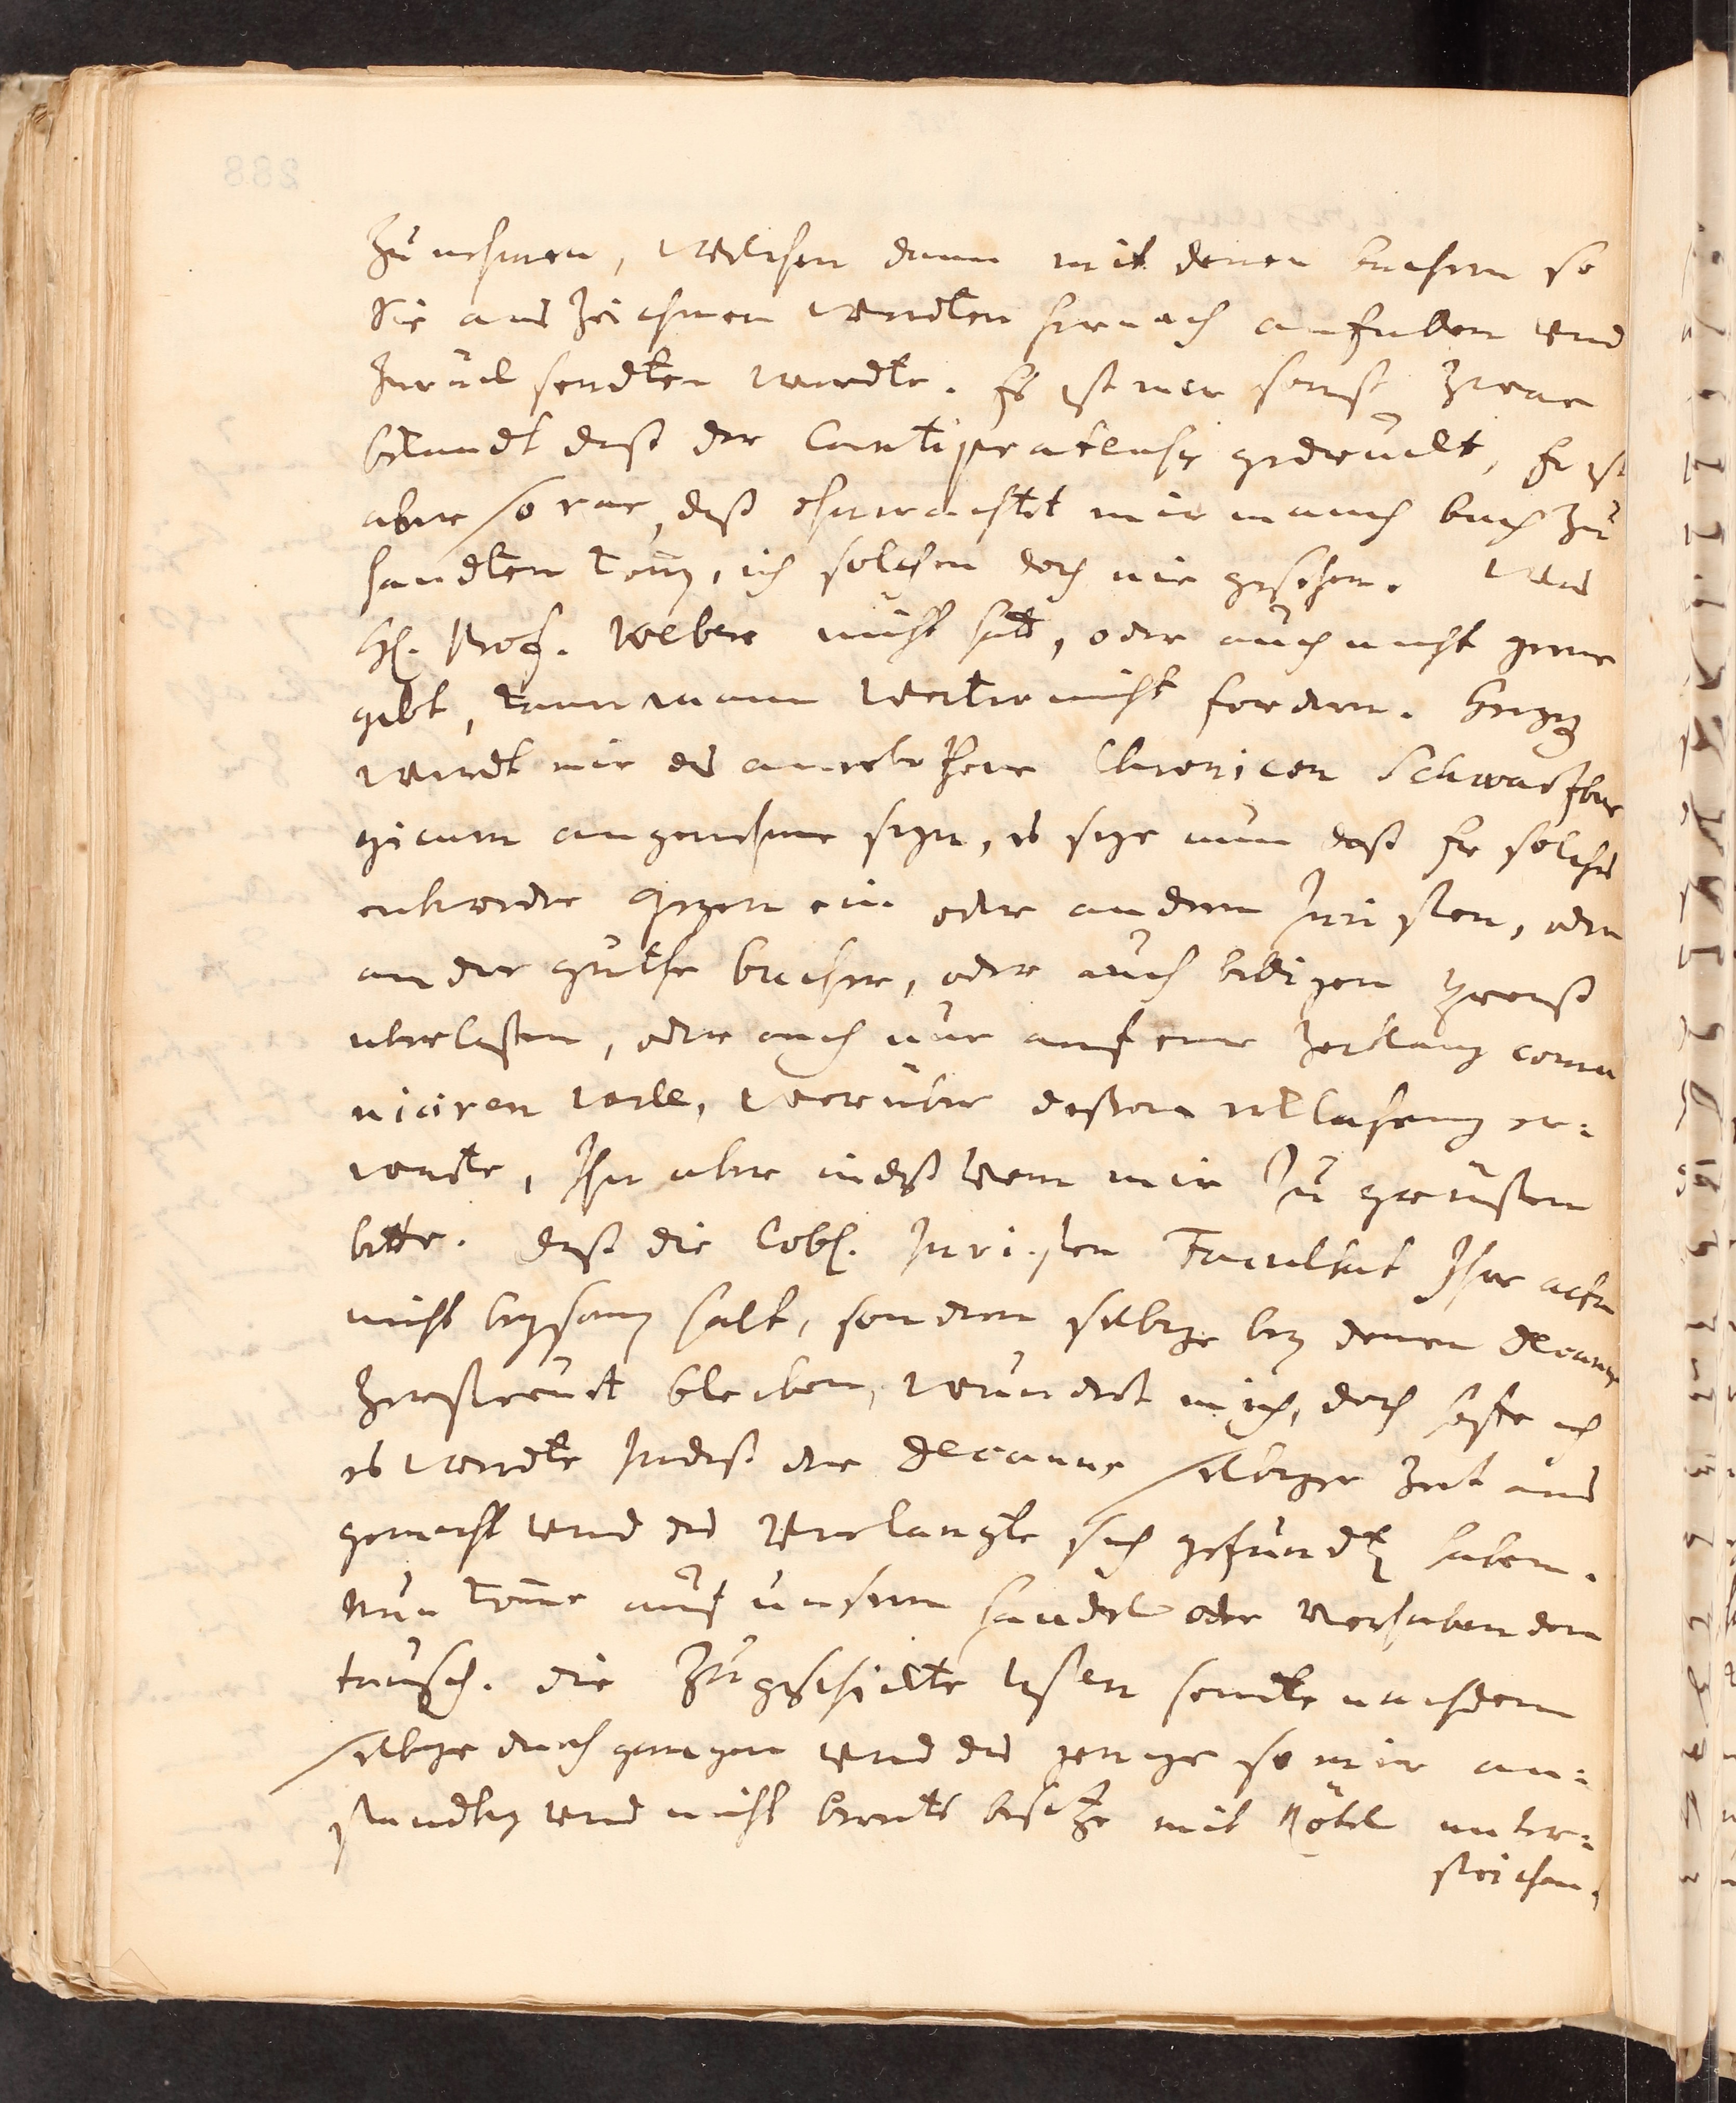 zu nehmen, welchen dann mit denen buchern so
Sie aus zeichnen werdten hernach anfullen und
zurück sendten werdte. Es ist mir sonst zwar
bekandt daß der Cantipratensis gedruckt, Er ist
aber so rar, daß ohnerachtet mir manch buch zu
handten komt, ich solchen doch nie gesehen. Was
H. Prof. Weber nicht hatt, oder auch nicht gerne
gibt, kann mann weiter nicht fordern.
wirdt mir das anerbottene Chronicon Schwartzbur
gicum angenehme seyn, es seye nun daß Er solches
entweder gegen ein oder andern Juristen, oder
andre guthe bucher, oder auch billigen preiß
uberlaßen, oder auch nur auf eine zeitlang comu
niciren wolle, woruber deßen erklahrung er-
warte, Ihn aber indeß von mir zu grüßen
bitte. daß die Löbl. Juristen Facultät Ihre acta
nicht beysamen halt, sondern selbige bey denen decanis
zerstreut bleiben, wundert mich, doch hoffe ich
es werdte indeß der decanus selbiger Zeit aus
gemacht und das verlangte sich gefundten haben.
Nun kome auf unsern handel oder vorhabenden
tausch. die zugeschickte listen sendte nachdem
selbige durchgangen und das jenige so mir an-
standtig und nicht bereits besitze mit Rötel unter-
strichen,
288